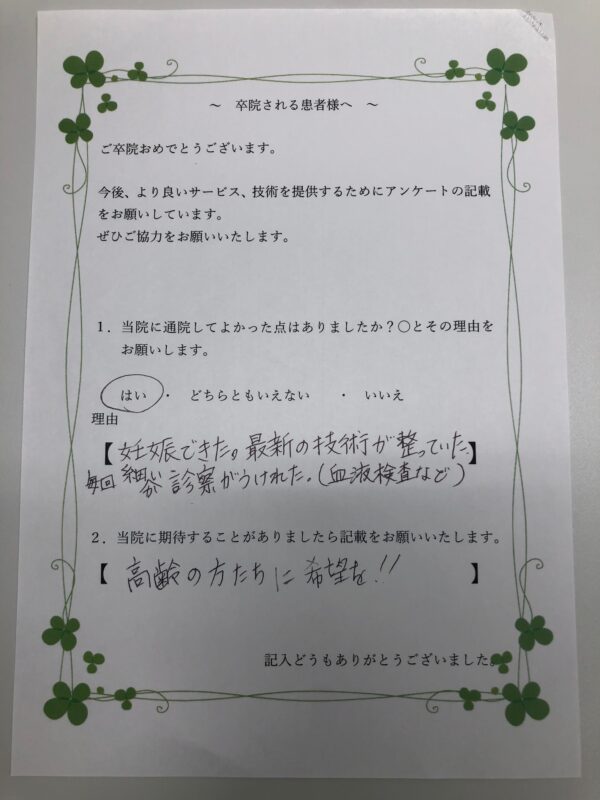 ～ 卒院される患者様へ ～
ご卒院おめでとうございます。
今後、より良いサービス、技術を提供するためにアンケートの記載
をお願いしています。
ぜひご協力をお願いいたします。
１．当院に通院してよかった点はありましたか？〇とその理由を
お願いします。
はい ・ どちらともいえない ・ いいえ
理由
【妊娠できた。最新の技術が整っていた。】
毎回 細かい 診察がうけれた。(血液検査など)
２．当院に期待することがありましたら記載をお願いいたします。
【 高齢の方たちに希望を!! 】
記入どうもありがとうございました。